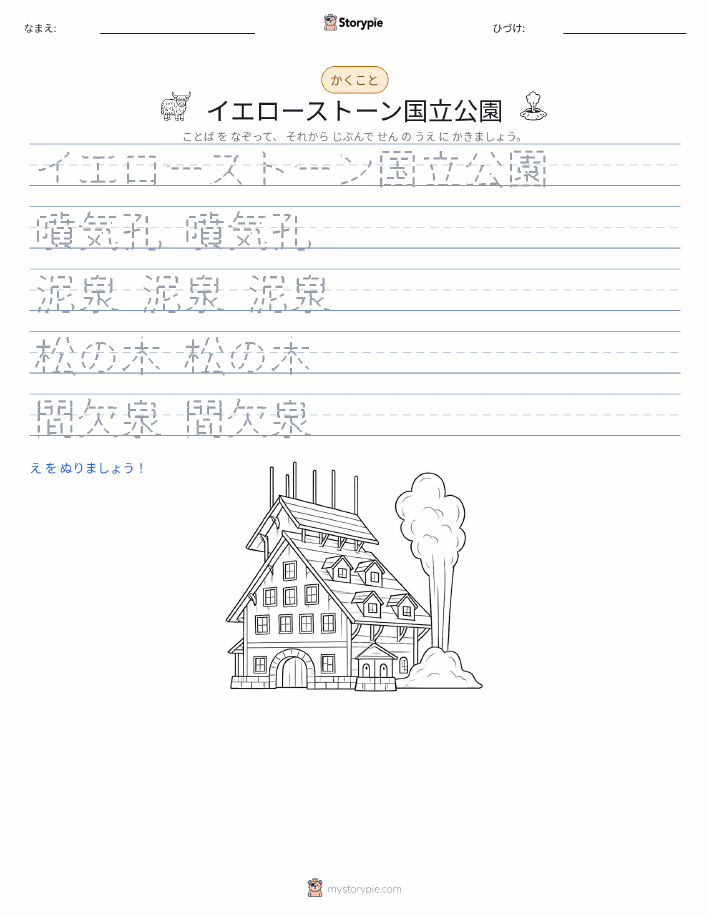 なまえ:
Storypie
ひづけ:
かくこと
イエローストーン国立公園
ことば を なぞって、 それから じぶんで せん の うえ に かきましょう。
イエローストーン国立公園
噴気孔 噴気孔
泥泉 泥泉 泥泉
松の木 松の木
間欠泉 間欠泉
え を ぬりましょう！
mystorypie.com